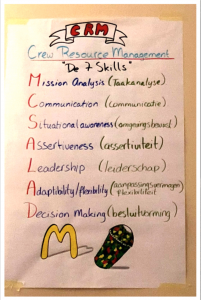 CRM
Crew Resource Management
"De 7 Skills"
Mission Analysis (Taakanalyse)
Communication (communicatie)
Situational awareness (omgevingsbewust)
Assertiveness (assertiviteit)
Leadership (leiderschap)
Adaptibility/flexibility (aanpassingsvermogen/flexibiliteit)
Decision Making (besluitvorming)
M